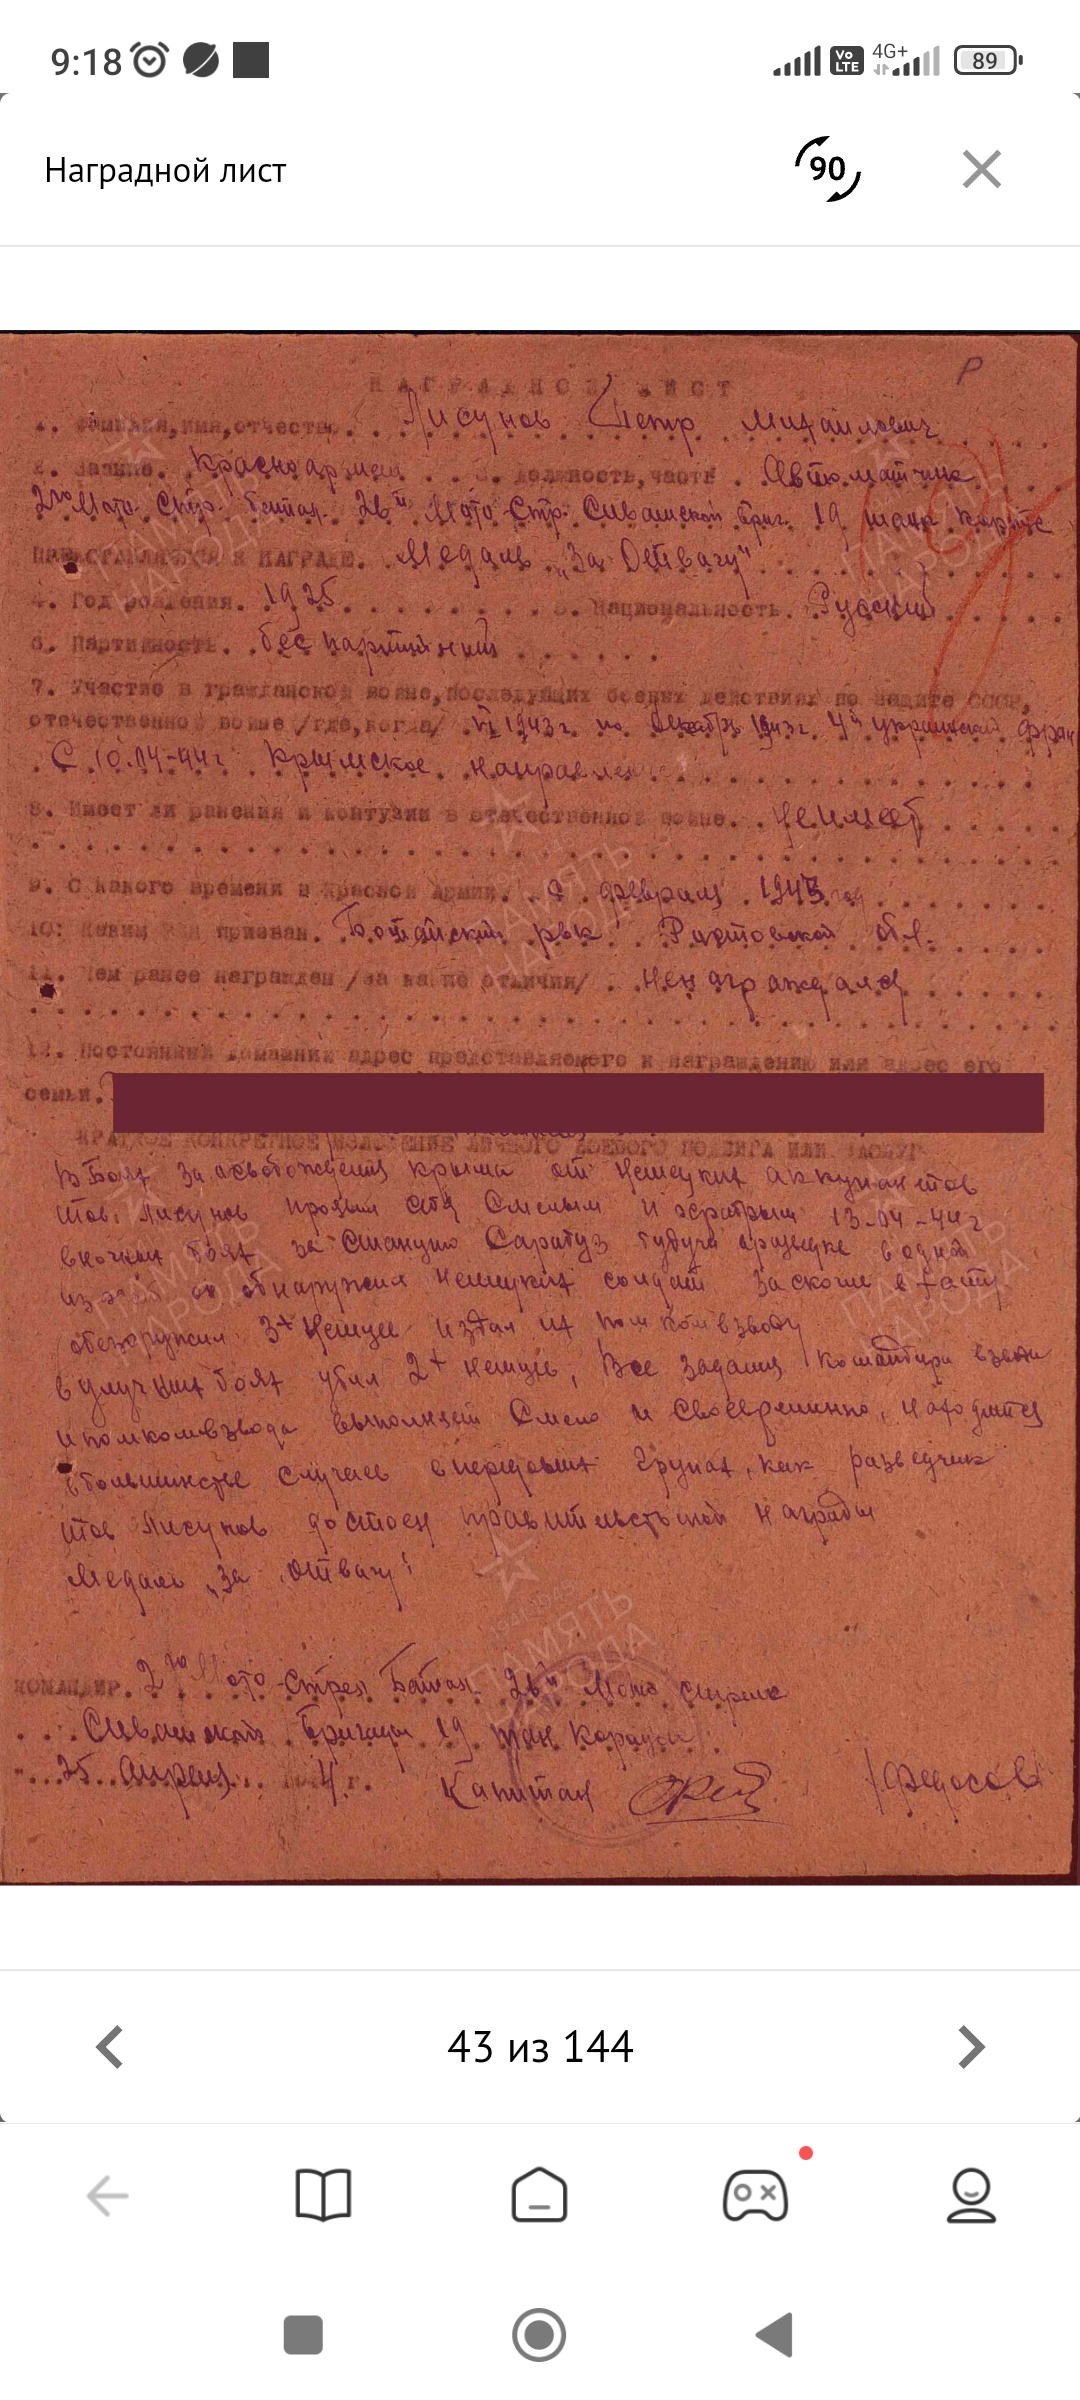 9:18
Vo LTE 4G+ 89
Наградной лист
90
НАГРАДНОЙ ЛИСТ
Р
1. Фамилия, имя, отчество. Лисунов Петр Михайлович
2. Звание. Красноармеец 3. Должность, часть. Автоматчик
2го Мото Стр. батал. 26й Мото Стр. Сивашской бриг. 19 танк корпус
ПРЕДСТАВЛЯЕТСЯ К НАГРАДЕ. Медаль „За Отвагу"
4. Год рождения. 1925 5. Национальность. Русский
6. Партийность. беспартийний
7. Участие в гражданской войне, последующих боевых действиях по защите СССР,
отечественной войне /где, когда/ VI 1943г. по декабрь 1943г. 4й украинский фрон
С 10.04-44г Крымское направление
8. Имеет ли ранения и контузии в отечественной войне. Неимеет
9. С какого времени в Красной Армии. С февраля
10. Каким РВК призван. рвк Ростовской обл.
11. Чем ранее награжден /за какие отличия/ ненаграждался
12. Постоянный домашний адрес представляемого к награждению или адрес его
семьи.
КРАТКОЕ КОНКРЕТНОЕ ИЗЛОЖЕНИЕ ЛИЧНОГО БОЕВОГО ПОДВИГА ИЛИ ЗАСЛУГ
В Боях за освобождения крыма от немецких аккупантов
тов. Лисунов проявил себя Смелым и храбрым 13-04-44г
вночных боях за станцию Сарабуз будучи вразведке водной
из хат он обнаружил немецких солдат заскочил в хату
обезоружил 3х Немцев издал их помкомвзводу
вуличных боях убил 2х немцев, Все задания командира взвода
ипомкомвзвода выполнял Смело и Своевременно, находится
вбольшинстве случаев впередовых Групах, как разведчик
тов Лисунов достоен правительственой награды
Медаль „За отвагу"
КОМАНДИР. 2го Мото-стрел Батал. 26й Мото стрелк
Сивашской Бригады 19 тан Корпуса
"25 Апреля 4 г. Капитан /Федосов
ПАМЯТЬ НАРОДА
1941-1945
43 из 144